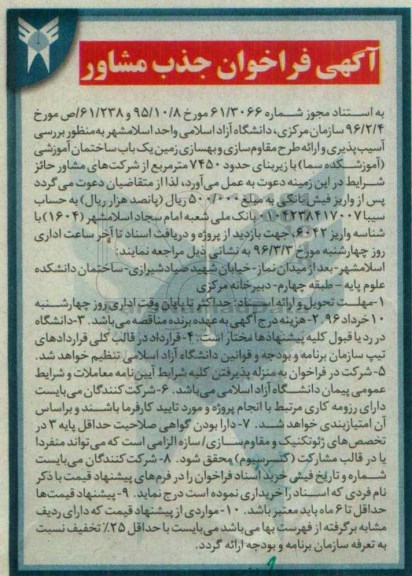 آگهی فراخوان جذب مشاور
به استناد مجوز شماره ۶۱/۳۰۶۶ مورخ ۹۵/۱۰/۸ و ۶۱/۲۳۸/ص مورخ
۹۶/۲/۴ سازمان مرکزی، دانشگاه آزاد اسلامی واحد اسلامشهر به منظور بررسی
آسیب پذیری و ارائه طرح مقاوم سازی و بهسازی زمین یک باب ساختمان آموزشی
(آموزشکده سما) با زیربنای حدود ۷۴۵۰ مترمربع از شرکت های مشاور حائز
شرایط در این زمینه دعوت به عمل می آورد، لذا از متقاضیان دعوت می گردد
پس از واریز فیش بانکی به مبلغ ۵۰۰/۰۰۰ ریال (پانصد هزار ریال) به حساب
سیبا ۰۱۰۴۲۳۸۴۱۷۰۰۷ بانک ملی شعبه امام سجاد اسلامشهر (۱۶۰۴) با
شناسه واریز ۶۰۴۲، جهت بازدید از پروژه و دریافت اسناد تا آخر ساعت اداری
روز چهارشنبه مورخ ۹۶/۳/۳ به نشانی ذیل مراجعه نمایند:
اسلامشهر- بعد از میدان نماز- خیابان شهید صیادشیرازی- ساختمان دانشکده
علوم پایه – طبقه چهارم- دبیرخانه مرکزی
۱-مهلت تحویل و ارائه اسناد: حداکثر تا پایان وقت اداری روز چهارشنبه
۱۰ خرداد ۹۶. ۲- هزینه درج آگهی به عهده برنده مناقصه می باشد. ۳- دانشگاه
در رد یا قبول کلیه پیشنهادها مختار است. ۴- قرارداد در قالب کلی قراردادهای
تیپ سازمان برنامه و بودجه و قوانین دانشگاه آزاد اسلامی تنظیم خواهد شد.
۵-شرکت در فراخوان به منزله پذیرفتن کلیه شرایط آیین نامه معاملات و شرایط
عمومی پیمان دانشگاه آزاد اسلامی می باشد. ۶-شرکت کنندگان می بایست
دارای رزومه کاری مرتبط با انجام پروژه و مورد تایید کارفرما باشند و براساس
آن امتیازبندی خواهد شد. ۷- دارا بودن گواهی صلاحیت حداقل پایه ۳ در
تخصص های ژئوتکنیک و مقاوم سازی/ سازه الزامی است که می تواند منفردا
یا در قالب مشارکت (کنسرسیوم) محقق شود. ۸- شرکت کنندگان می بایست
شماره و تاریخ فیش خرید اسناد فراخوان را در فرم های پیشنهاد قیمت با ذکر
نام فردی که اسناد را خریداری نموده است درج نماید. ۹- پیشنهاد قیمت ها
حداقل تا ۶ ماه باید معتبر باشد. ۱۰- مواردی از پیشنهاد قیمت که دارای ردیف
مشابه برگرفته از فهرست بها می باشد می بایست با حداقل ۲۵٪ تخفیف نسبت
به تعرفه سازمان برنامه و بودجه ارائه گردد.